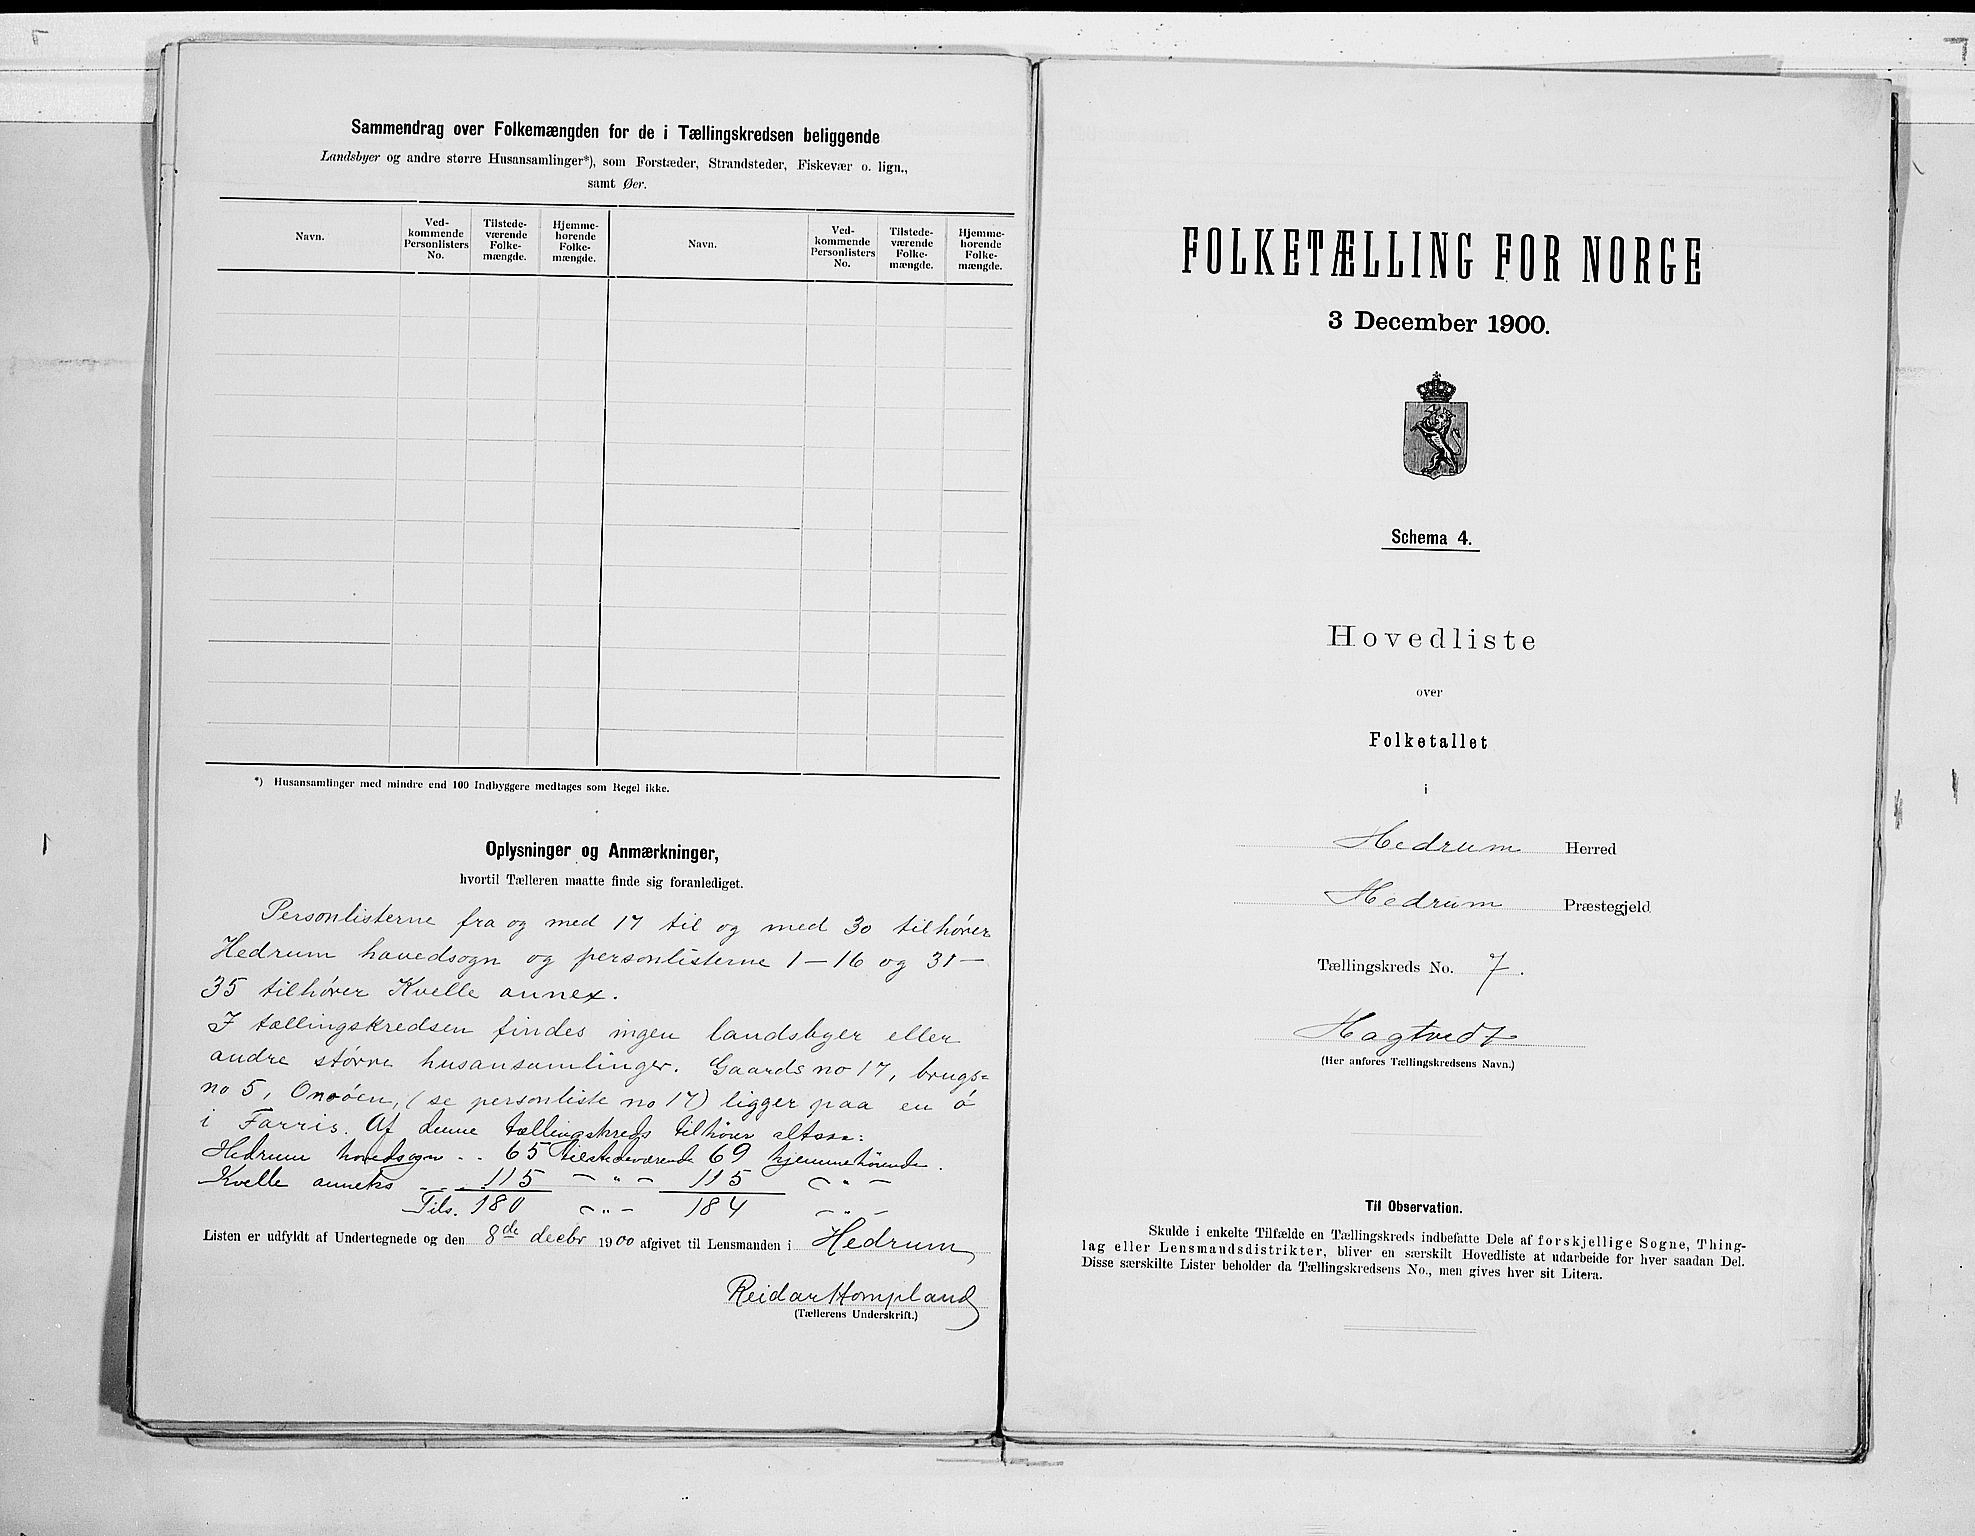 Sammendrag over Folkemængden for de i Tællingskredsen beliggende
Landsbyer og andre større Husansamlinger*), som Forstæder, Strandsteder, Fiskevær o. lign.,
samt Øer.
Navn.
Ved-
kommende
Personlisters
No.
Tilstede-
værende
Folke-
mængde.
Hjemme-
hørende
Folke-
mængde.
Navn.
Ved-
kommende
Personlisters
No.
Tilstede-
værende
Folke-
mængde.
Hjemme-
hørende
Folke-
mængde.
*) Husansamlinger med mindre end 100 Indbyggere medtages som Regel ikke.
Oplysninger og Anmærkninger,
hvortil Tælleren maatte finde sig foranlediget.
Personlisterne fra og med 17 til og med 30 tilhører
Hedrum hovedsogn og personlisterne 1 – 16 og 31 –
35 tilhører Kvelle annex.
I tællingskredsen findes ingen landsbyer eller
andre større husansamlinger. Gaards no 17, brugs=
no 5, (se personliste no 17) ligger paa en ø
i Farris. Af denne tællingskreds tilhører altsaa:
Hedrum hovedsogn . . 65 tilstedeværende 69 hjemmehørende.
Kvelle anneks . . . . 115 – " – 115 – " –
Tils. 180 – " – 184 – " –
Listen er udfyldt af Undertegnede og den 8de decbr 1900 afgivet til Lensmanden i Hedrum
Reidar Hompland
(Tællerens Underskrift.)
FOLKETÆLLING FOR NORGE
3 December 1900.
Schema 4.
Hovedliste
over
Folketallet
i
Hedrum Herred
Hedrum Præstegjeld
Tællingskreds No. 7.
Hagtvedt
(Her anføres Tællingskredsens Navn.)
Til Observation.
Skulde i enkelte Tilfælde en Tællingskreds indbefatte Dele af forskjellige Sogne, Thing-
lag eller Lensmandsdistrikter, bliver en særskilt Hovedliste at udarbeide for hver saadan Del.
Disse særskilte Lister beholder da Tællingskredsens No., men gives hver sit Litera.